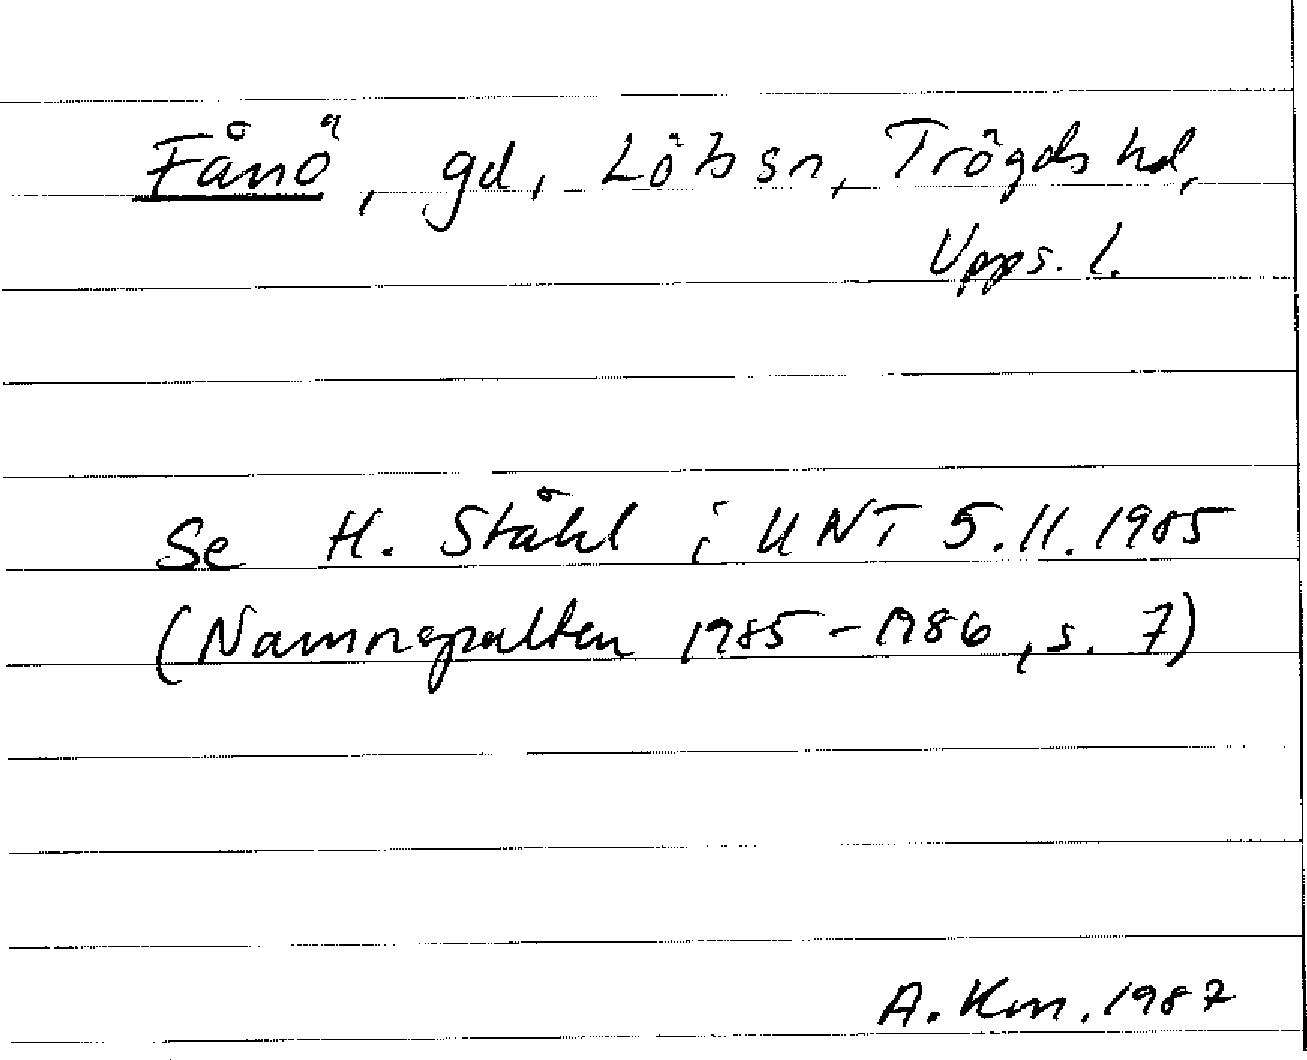 Fånö, gd, Löts sn, Trögds hd,
Upps. l.
Se H. Ståhl i UNT 5.11.1985
(Namnspalten 1985-1986, s. 7)
A. Km. 1987